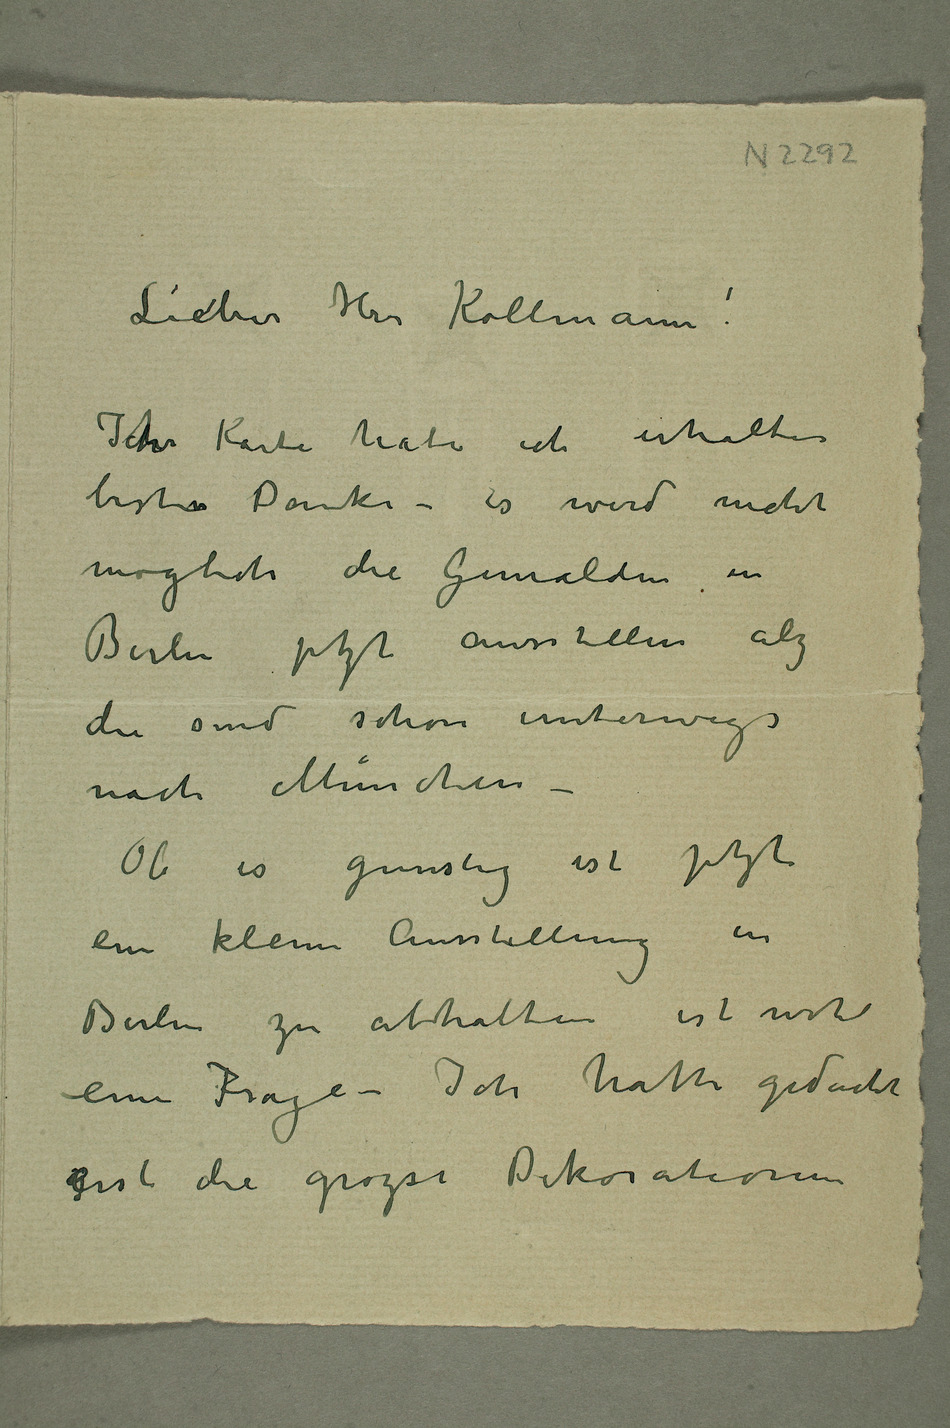 N 2292
Lieber Herr Kollmann!
Ihre Karte habe ich erhalten
besten Danke – es wird nicht
möglich die Gemälden in
Berlin jetzt ausstellen als
die sind schon unterwegs
nach München –
Ob es gunstig ist jetzt
ein kleine Ausstellung in
Berlin zu abhalten ist wohl
eine Frage – Ich hatte gedacht
erst die grozse Dekorationen